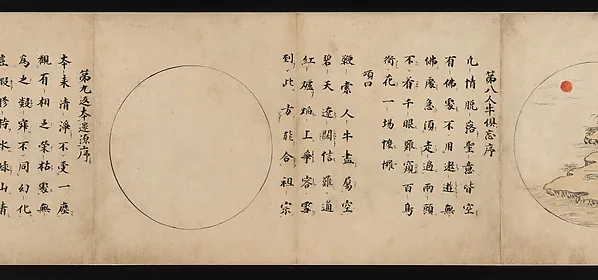 第八人牛俱忘序
凡情脱落聖意皆空
有佛處不用遨遊無
佛處急須走過兩頭
不着千眼難窺百鳥
銜花一場懡㦬
頌曰
鞭索人牛盡屬空
碧天遼闊信難通
紅爐焔上爭容雪
到此方能合祖宗
第九返本還源序
本来清淨不受一塵
觀有相之榮枯處無
為之凝寂不同幻化
豈假修持水緑山青